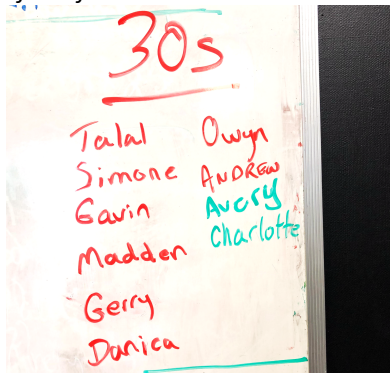 30s
Talal
Simone
Gavin
Madden
Gerry
Danica
Owyn
ANDREW
Avery
Charlotte